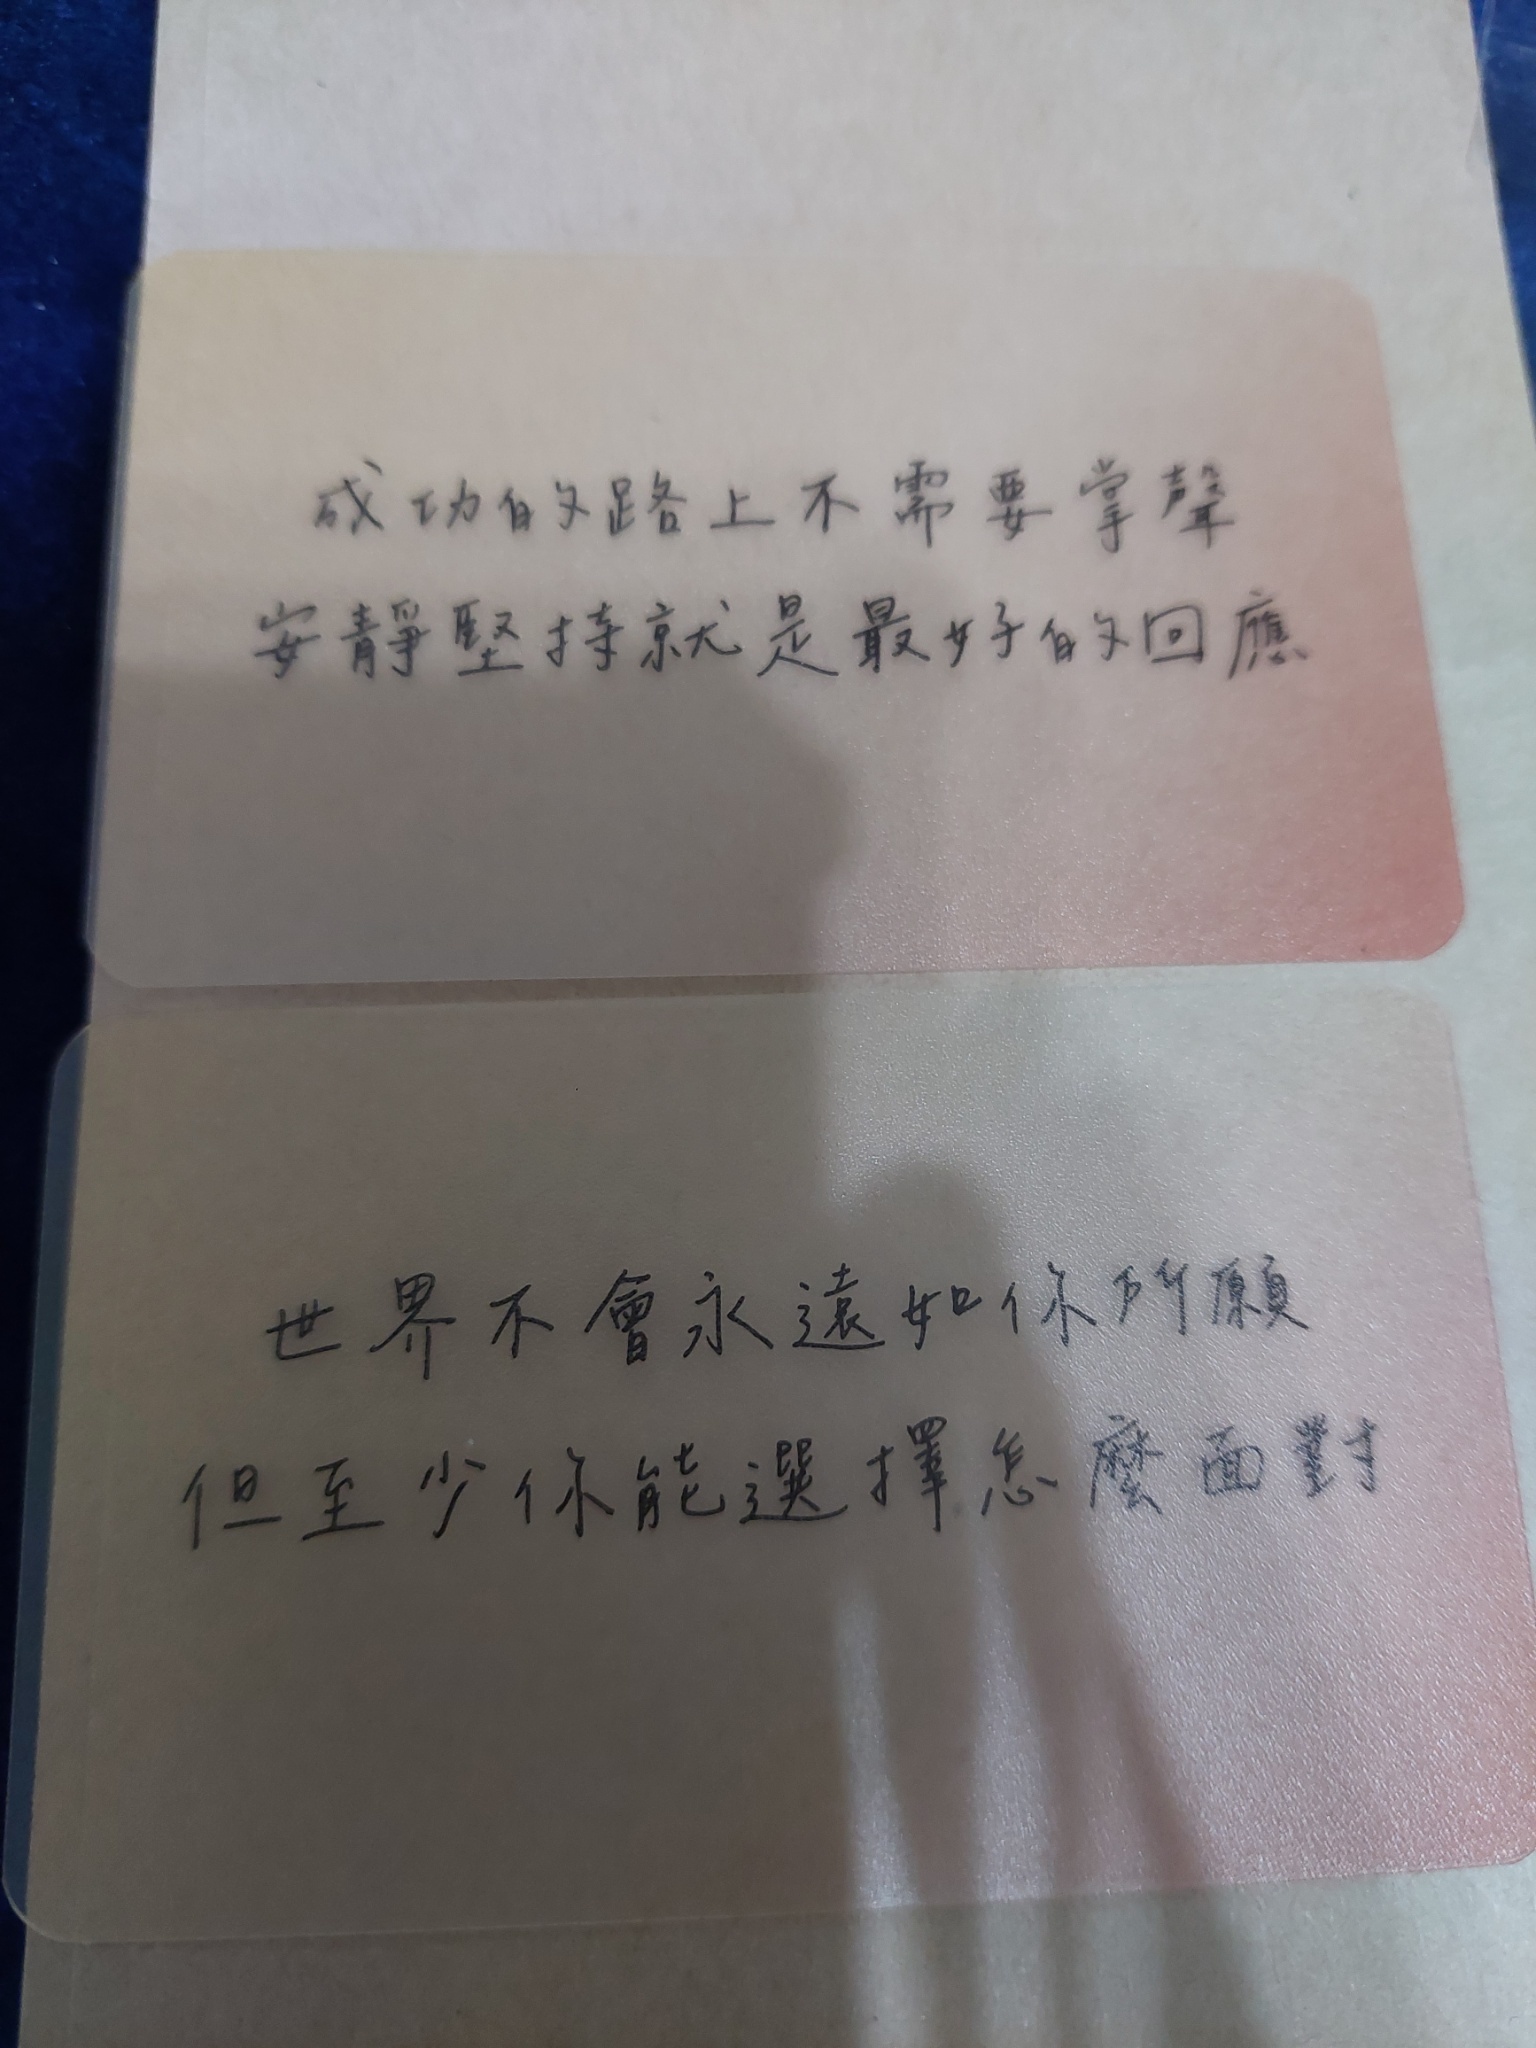 成功的路上不需要掌聲
安靜堅持就是最好的回應
世界不會永遠如你所願
但至少你能選擇怎麼面對